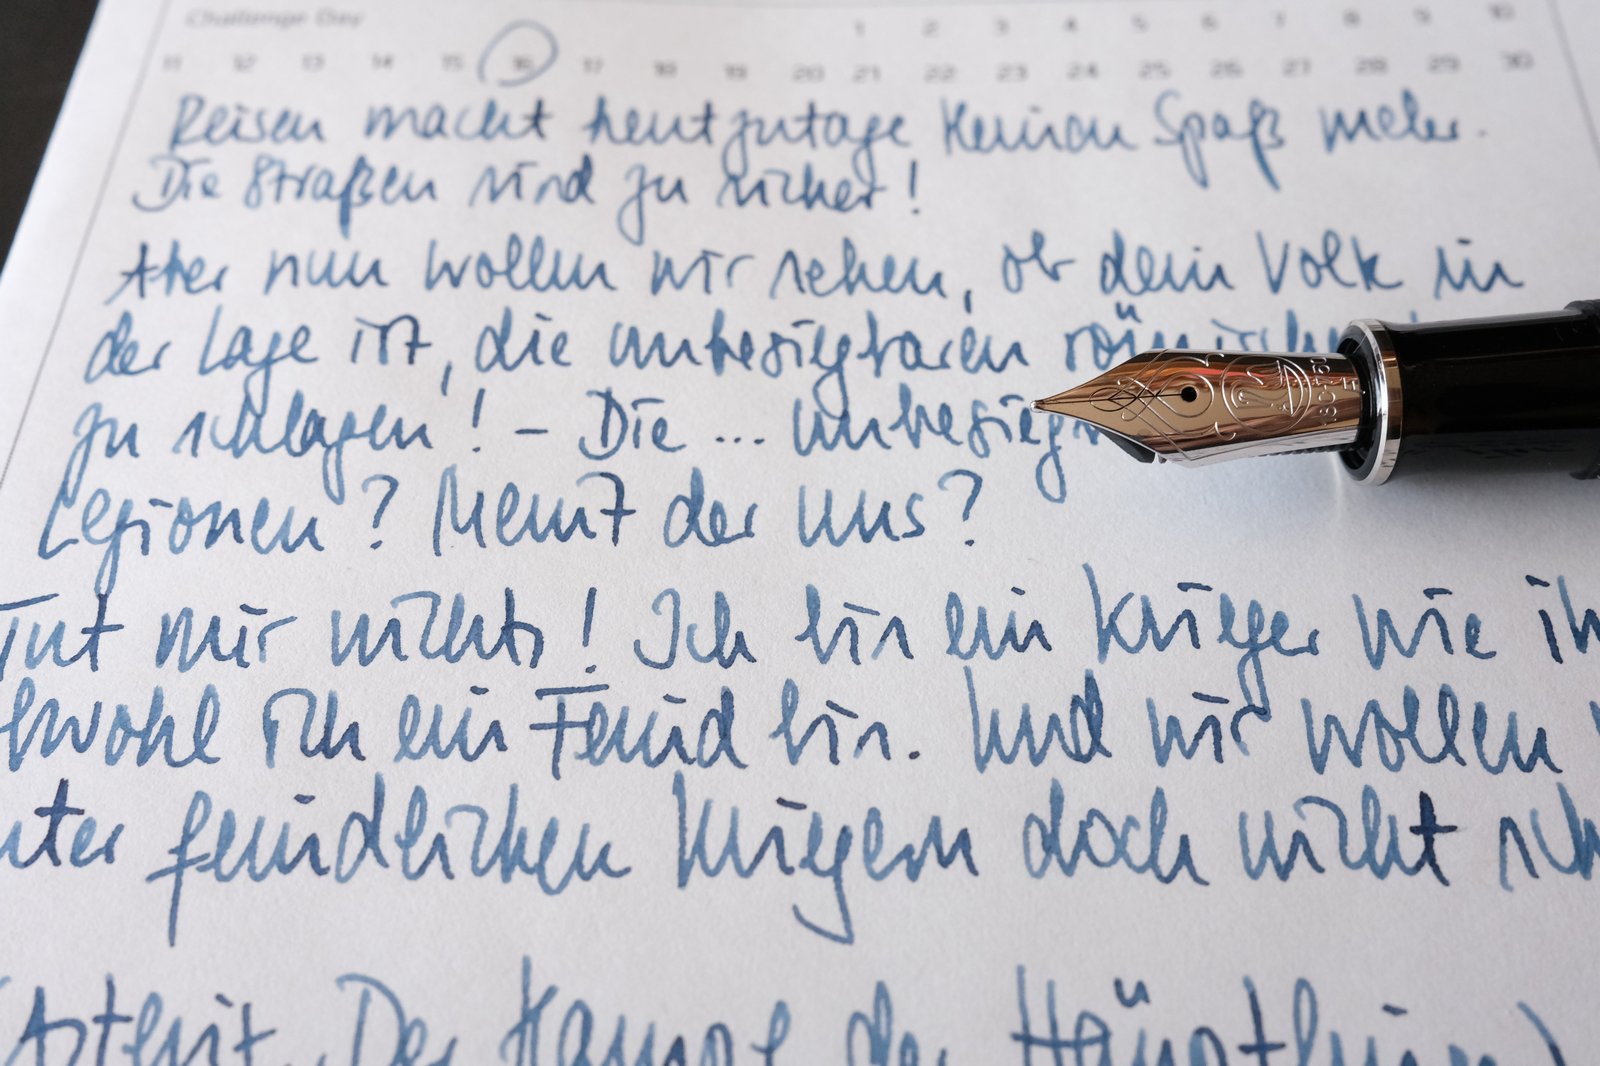 Challenge Day 1 2 3 4 5 6 7 8 9 10
11 12 13 14 15 16 17 18 19 20 21 22 23 24 25 26 27 28 29 30
Reisen macht heutzutage keinen Spaß mehr.
Die Straßen sind zu sicher!
Aber nun wollen wir sehen, ob dein Volk in
der Lage ist, die unbesiegbaren römischen
zu schlagen! - Die ... unbesiegb
Legionen? Meint der uns?
Tut mir nichts! Ich bin ein Krieger wie ih
bwohl ich ein Feind bin. Und wir wollen
nter feindlichen Kriegern doch nicht sch
(Asterix, Der Kampf der Häuptlinge)